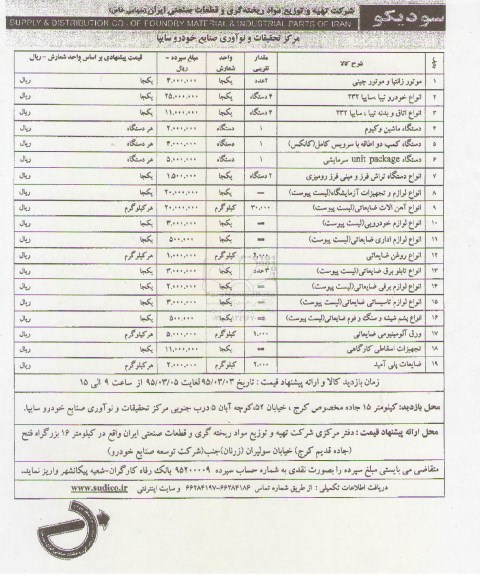 سودیکو
شرکت تهیه و توزیع مواد ریخته گری و قطعات صنعتی ایران (سهامی خاص)
SUPPLY & DISTRIBUTION CO. OF FOUNDRY MATERIAL & INDUSTRIAL PARTS OF IRAN
مرکز تحقیقات و نوآوری صنایع خودرو سایپا
شرح کالا مقدار تقریبی واحد شمارش مبلغ سپرده - ریال قیمت پیشنهادی بر اساس واحد شمارش - ریال
۱ موتور زانتیا و موتور چینی ۲عدد یکجا ۴،۰۰۰،۰۰۰ یکجا ریال
۲ انواع خودرو تیبا ،سایپا ۲۳۲ ۴ دستگاه یکجا ۲۵،۰۰۰،۰۰۰ یکجا ریال
۳ انواع اتاق و بدنه تیبا ، سایپا ۲۳۲ ۳ دستگاه یکجا ۱۱،۰۰۰،۰۰۰ یکجا ریال
۴ دستگاه ماشین وکیوم ۱ دستگاه ۲،۰۰۰،۰۰۰ هر دستگاه ریال
۵ دستگاه کمپ دو اطاقه با سرویس کامل(کانکس) ۱ دستگاه ۴،۰۰۰،۰۰۰ هر دستگاه ریال
۶ دستگاه unit package سرمایشی ۱ دستگاه ۵،۰۰۰،۰۰۰ هر دستگاه ریال
۷ انواع دستگاه تراش فرز و مینی فرز رومیزی ۲ دستگاه یکجا ۱،۵۰۰،۰۰۰ یکجا ریال
۸ انواع لوازم و تجهیزات آزمایشگاه(لیست پیوست) — یکجا ۲۰،۰۰۰،۰۰۰ یکجا ریال
۹ انواع آهن الات ضایعاتی(لیست پیوست) ۳۰،۰۰۰ کیلوگرم ۲۰،۰۰۰،۰۰۰ هرکیلوگرم ریال
۱۰ انواع لوازم خودرویی(لیست پیوست) — یکجا ۳،۰۰۰،۰۰۰ یکجا ریال
۱۱ انواع لوازم اداری ضایعاتی(لیست پیوست) — یکجا ۵۰۰،۰۰۰ یکجا ریال
۱۲ انواع روغن ضایعاتی کیلوگرم ۱،۰۰۰،۰۰۰ هرکیلوگرم ریال
۱۳ انواع تابلو برق ضایعاتی(لیست پیوست) ۳عدد یکجا ۳،۰۰۰،۰۰۰ یکجا ریال
۱۴ انواع لوازم برقی ضایعاتی(لیست پیوست) — یکجا ۲،۰۰۰،۰۰۰ یکجا ریال
۱۵ انواع لوازم تاسیساتی ضایعاتی(لیست پیوست) — یکجا ۳،۰۰۰،۰۰۰ یکجا ریال
۱۶ انواع پشم شیشه و سنگ و فوم ضایعاتی(لیست پیوست) — یکجا ۵۰۰،۰۰۰ یکجا ریال
۱۷ ورق آلومینیومی ضایعاتی ۱،۰۰۰ کیلوگرم ۵،۰۰۰،۰۰۰ هرکیلوگرم ریال
۱۸ تجهیزات اسقاطی کارگاهی — یکجا ۱۱،۰۰۰،۰۰۰ یکجا ریال
۱۹ ضایعات پلی آمید ۲،۰۰۰ کیلوگرم ۲،۰۰۰،۰۰۰ هرکیلوگرم ریال
زمان بازدید کالا و ارائه پیشنهاد قیمت : تاریخ ۹۵/۰۳/۰۳ لغایت ۹۵/۰۳/۰۵ از ساعت ۹ الی ۱۵
محل بازدید: کیلومتر ۱۵ جاده مخصوص کرج ، خیابان ۵۲،کوچه آبان ۵ درب جنوبی مرکز تحقیقات و نوآوری صنایع خودرو سایپا.
محل ارائه پیشنهاد قیمت : دفتر مرکزی شرکت تهیه و توزیع مواد ریخته گری و قطعات صنعتی ایران واقع در کیلومتر ۱۶ بزرگراه فتح
(جاده قدیم کرج) خیابان سولیران (زرنان)جنب(شرکت توسعه صنایع خودرو)
متقاضی می بایستی مبلغ سپرده را بصورت نقدی به شماره حساب سپرده ۹۵۲۰۰۰۰۹ بانک رفاه کارگران-شعبه پیکانشهر واریز نماید.
دریافت اطلاعات تکمیلی : از طریق شماره تماس ۶۶۲۸۴۱۸۶-۶۶۲۸۴۱۹۷ و سایت اینترنتی www.sudico.ir